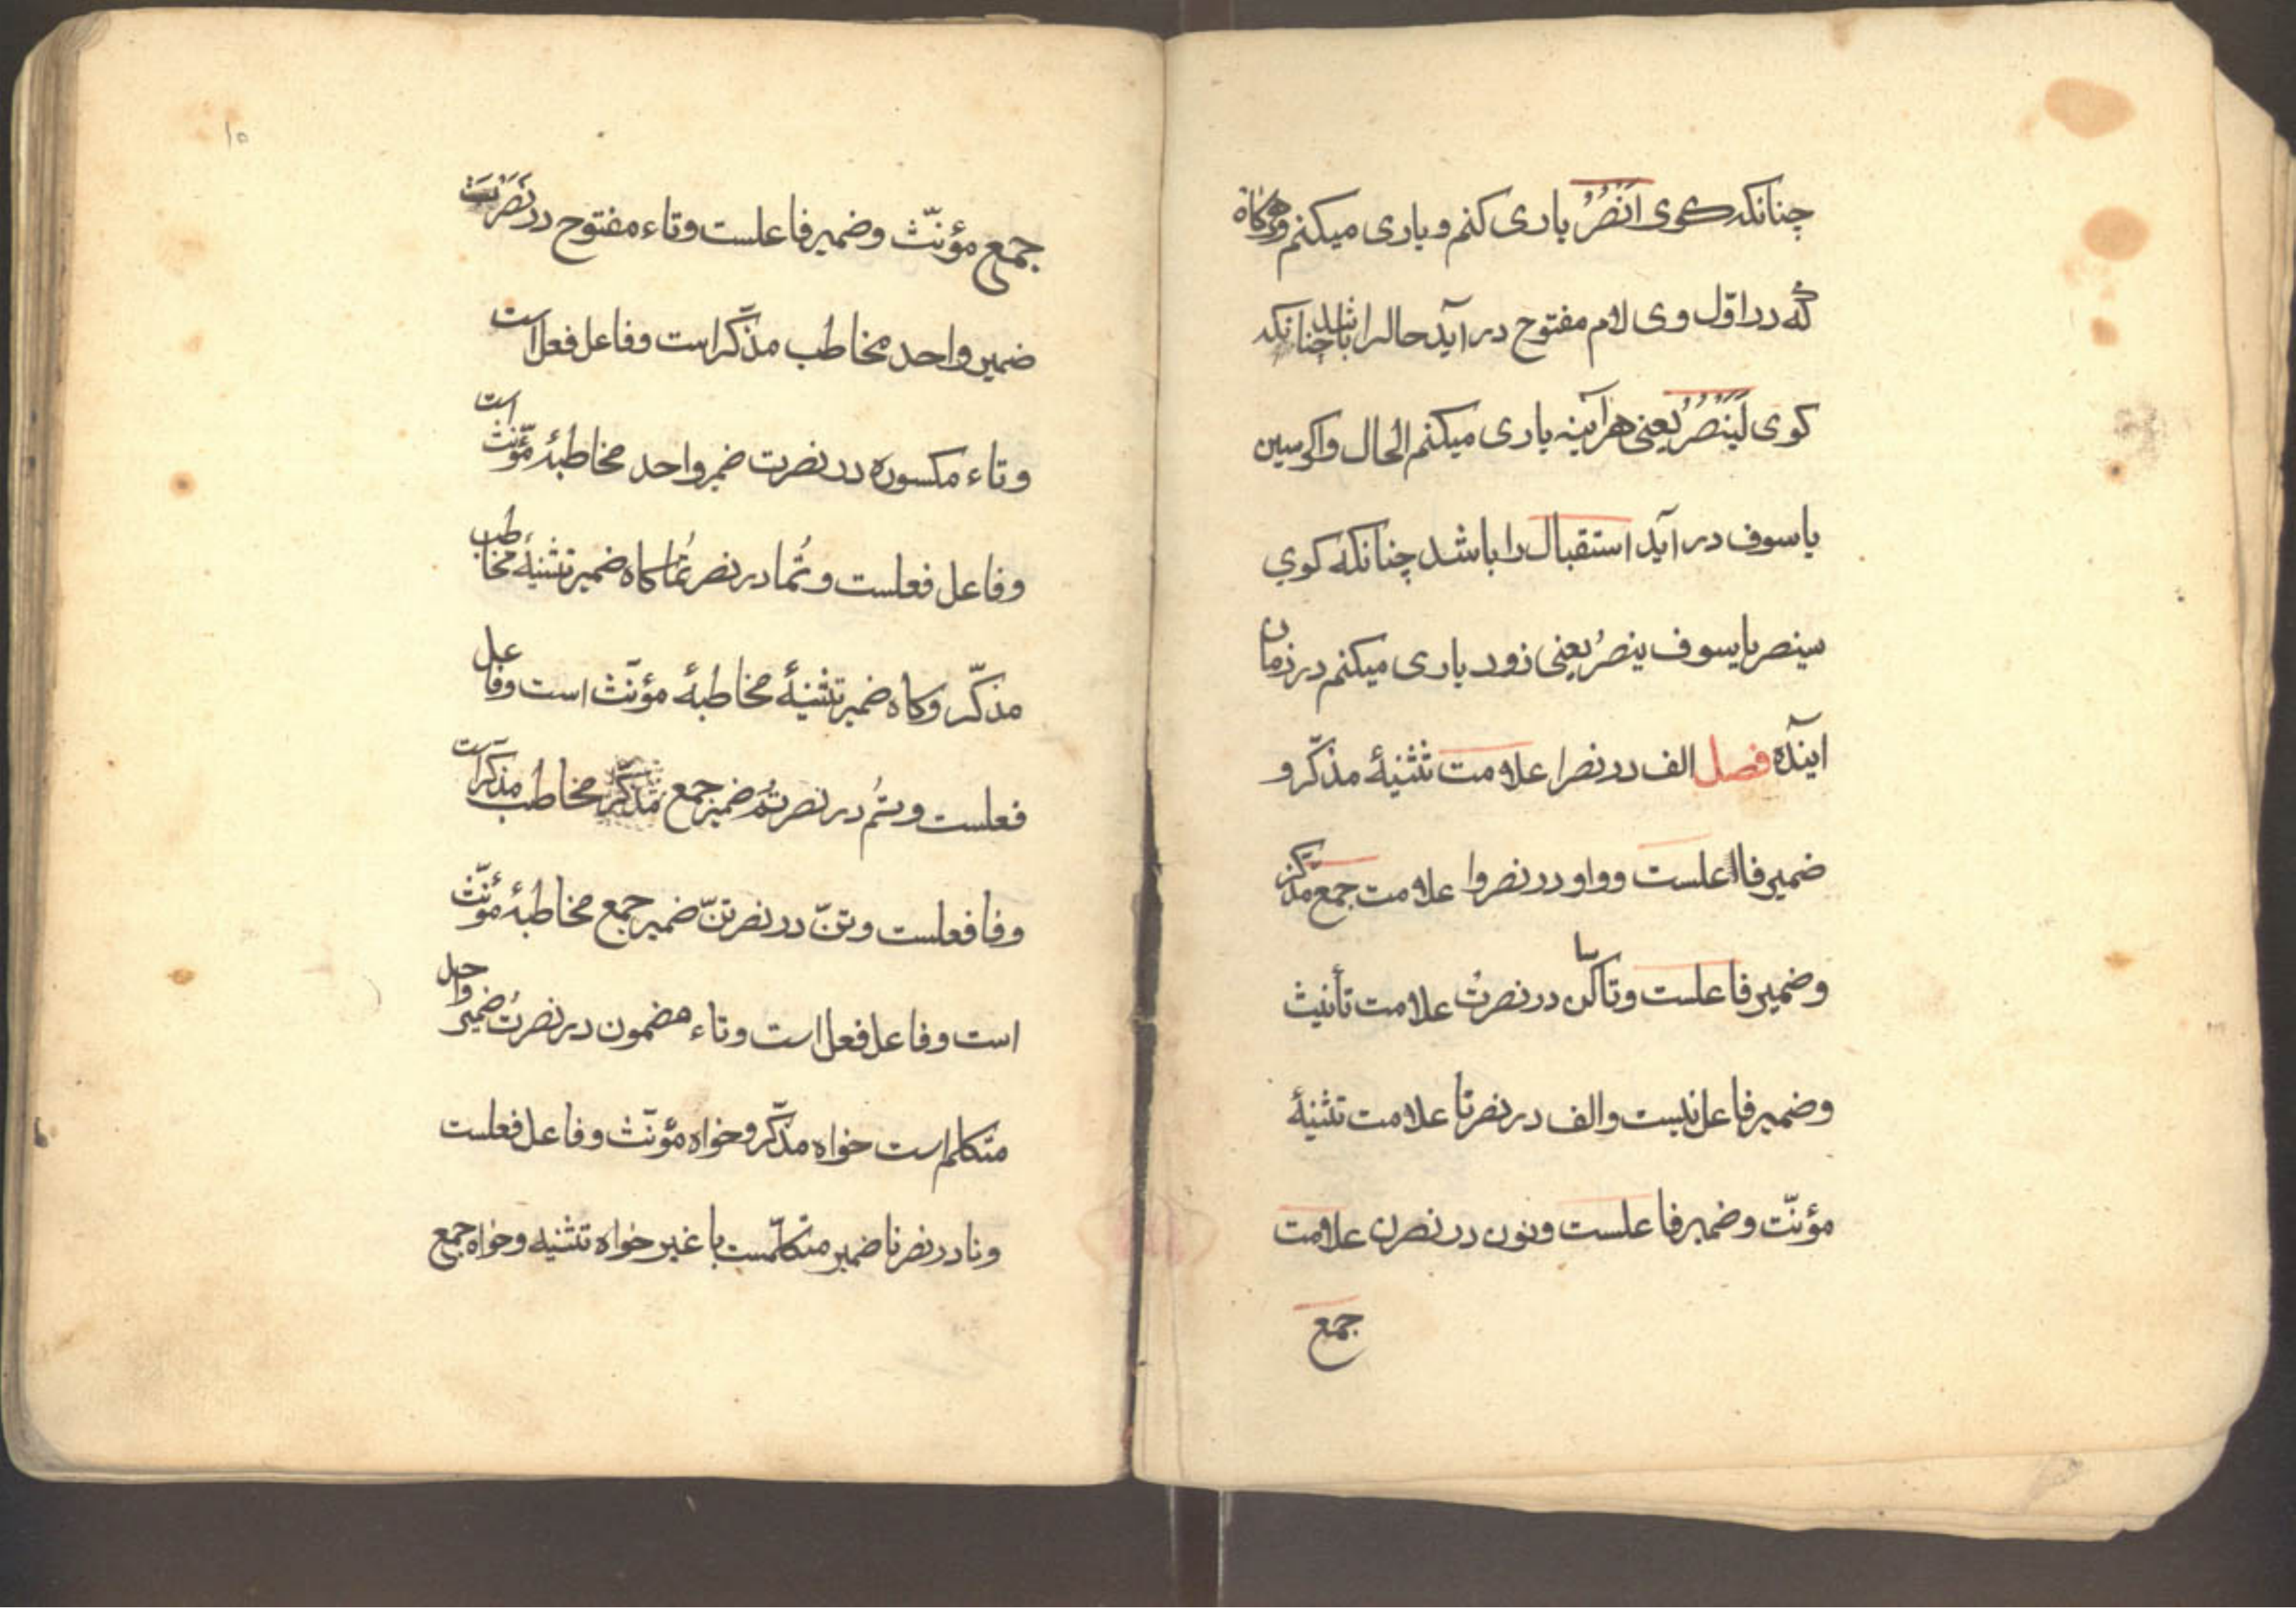 چنانکه کوی اَنْصُرُ یاری کنم و یاری میکنم و هرکاه
که در اوّل وی لام مفتوح در آید حالرا باشد چنانکه
کوی لَیَنْصُرُ یعنی هرآینه یاری میکنم الحال واکر سین
یا سوف در آید استقبال را باشد چنانکه کوي
سینصر یا یسوف ینصرُ یعنی زود یاری میکنم در زمان
اینده فصل الف در نصرا علامت تثنیهٔ مذکّر و
ضمیر فااعلست و واو در نصروا علامت جمع مذکّر
و ضمیر فاعلست و تا ساکن در نصرتْ علامت تأنیث
و ضمیر فاعل نیست والف در نصرتا علامت تثنیهٔ
مؤنّت و ضمیر فاعلست و نون در نصرن علامت
جمع
۱۵
جمع مؤنّث و ضمیر فاعلست و تاء مفتوح در نَصَرْتَ
ضمیر واحد مخاطب مذکّر است و فاعل فعل است
و تاء مکسوره در نصرت ضمر واحد مخاطبهٔ مؤنّث است
و فاعل فعلست و تُما در نصرتُما کاه ضمیر تثنیهٔ مخاطب
مذکّر و کاه ضمیر تثنیهٔ مخاطبهٔ مؤنّث است و فاعل
فعلست و تُم در نصرتُم ضمیر جمع مذکّر مخاطب مذکّر است
و فا فعلست و تنّ در نصرتنّ ضمیر جمع مخاطبهٔ مؤنّث
است و فاعل فعل است و تاء مضمون در نصرتُ ضمیر واحل
متکلم است خواه مذکّر و خواه مؤنّث و فاعل فعلست
و نا در نصرنا ضمیر متکلّمست با غیر خواه تثنیه و خواه جمع